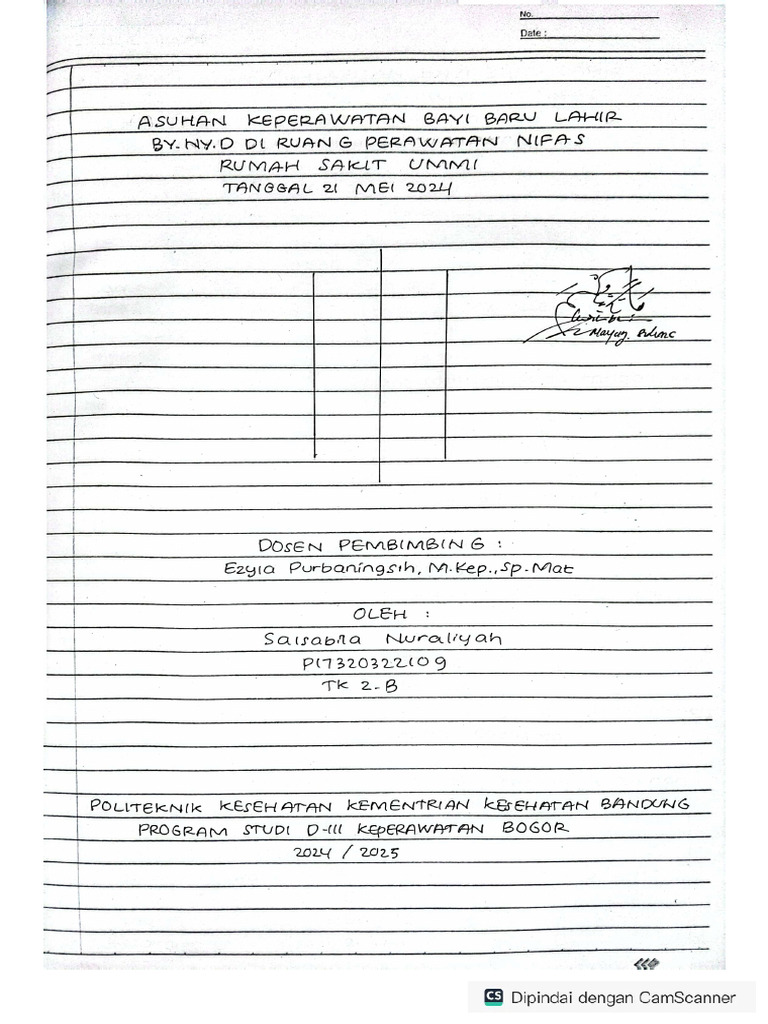 No.
Date :
ASUHAN KEPERAWATAN BAYI BARU LAHIR
BY.NY.D DI RUANG PERAWATAN NIFAS
RUMAH SAKIT UMMI
TANGGAL 21 MEI 2024
DOSEN PEMBIMBING :
Ezyia Purbaningsih, M.Kep., Sp.Mat
OLEH :
Salsabila Nuraliyah
P17320322109
TK 2-B
POLITEKNIK KESEHATAN KEMENTRIAN KESEHATAN BANDUNG
PROGRAM STUDI D-III KEPERAWATAN BOGOR
2024 / 2025
CS Dipindai dengan CamScanner